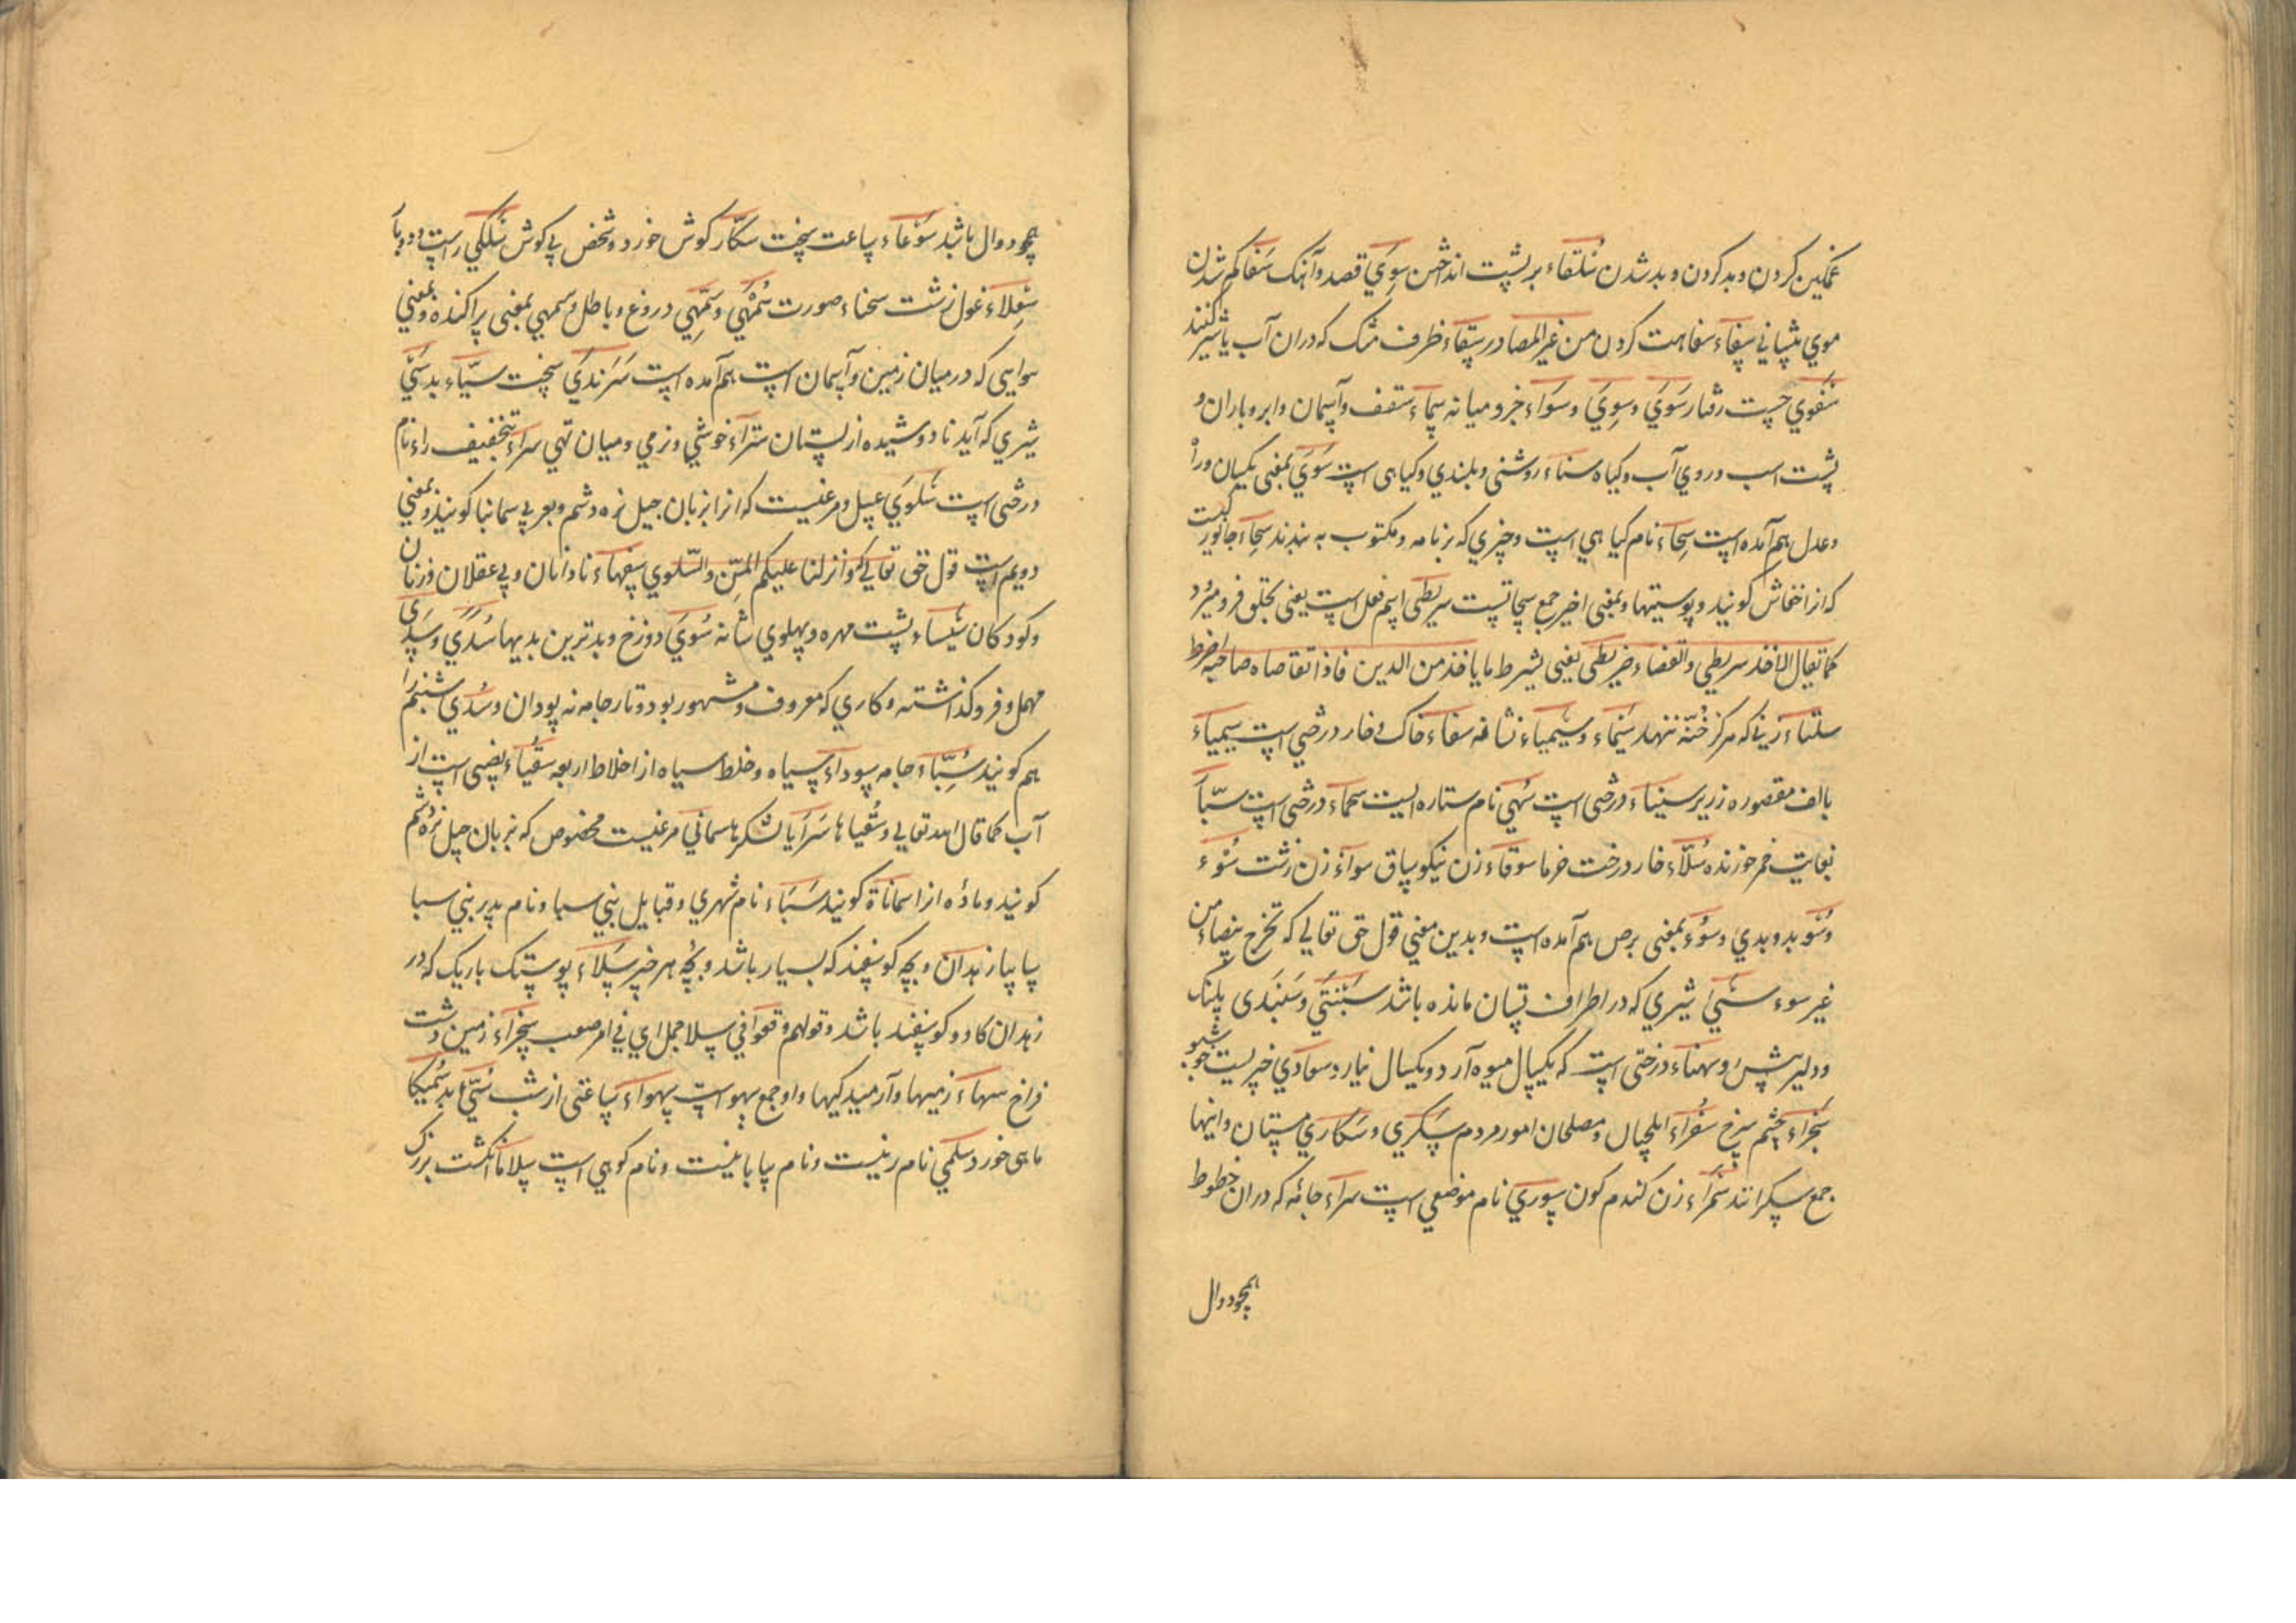 غمکین کردن و بد کردن و بد شدن سُلنقاء بر پشت انداختن سِوَي قصد و آهنک سَفا کم شدن
موي پیشاني سِفاء سفاهت کردن من غیر المصادر سِقاء ظرف مشک که دران آب یا شیر کنند
سَفَوي چست رفتار سَوَي و سِوَي و سَوَاء جز و میانه سماء سقف و آسمان و ابر و باران و
پشت اسب و روي آب و کیاه سناء روشنی و بلندي و کیاهی است سَوَيَ بمعنی یکسان و راٰ
و عدل هم آمده است سِحاء نام کیاهي است و چیزي که بر نامه و مکتوب به بندند سِحاء جانور یست
که انرا خفاش کویند و پوستیها و بمعنی اخیر جمع سحاتست سریطی اسم فعل است یعنی بحلق فرو میبرد
کما یقال الاخذ سریطي و القضاء ضریطی یعنی یسرط ما یاخذ من الدین فاذا تقاضاه صاحبه اضرط
سلتاء زني که هرکز حنّه ننهد سیماء و سیمیاء نشانه سفاء خاک و خار درختي است سیمیاء
بالف مقصوره زریر سیناء درختی است سُهي نام ستاره ایست سحماء درختی است سبّاء
بغایت خمر خورنده سُلّاء خار درخت خرما سوقاء زن نیکو ساق سوآء زن زشت سُوْء
و سَوْ بد و بدي و سُوْء بمعنی برص هم آمده است و بدین معنی قول حق تعالي که تخرج بیضاء من
غیر سوء سَيْء شیري که در اطراف پستان مانده باشد سَبَنْتَي و سَبَنْدی پلنک
و دلیر پیش رو سهناء درختی است که یکسال میوه آرد و یکسال نیارد سعادي چیزیست خوشبو
سَجْراء چشم سرخ سُفَراء ایلچیان و مصلحان امور مردم سَکري و سَکاري مستان و اینها
جمع سکرانند سَمراء زن کندم کون سوري نام موضعي است سیراء جامه که دران خطوط
همچو دوال
همچو دوال باشد سَوْعاء ساعت سخت سکّاء کوش خورد و شخص بي کوش سُلکي راست و دوتا
سِعلاء غول زشت سحناء صورت سُمَّهَي و سَمَّهِي دروغ و باطل و سمهي بمعنی پراکنده و بمعني
هوایی که در میان زمین و آسمان است هم آمده است سَرَنْدَي سخت سیّاء بد سَيْء
شیري که آید نا دوشیده از پستان سَرّاء خوشي و نرمي و میان تهي سراء بتخفیف راء نام
درختی است سَلوَي عسل و مرغیست که انرا بزبان جیل نره وشم و بعربي سمانيا کویند و بمعني
دویم است قول حق تعالي که و انزلنا علیکم المنّ و السلوي سفهاء نادانان و بي عقلان و زنان
و کودکان سیساء پشت مهره و پهلوي شانه سُوئَي دوزخ و بدترین بدیها سُدَي و سَدَی
مهمل و فرو کذاشته و کاري که معروف و مشهور بود و تار جامه نه پود ان و سُدَي شبنم را
هم کویند سُبّاء جامه سوداء سیاه و خلط سیاه از اخلاط اربعه سُقیاء نصیبی است از
آب کما قال الله تعالي و سُقیاها سَرایا لشکرها سماني مرغیست مخصوص که بزبان جیل نره وشم
کویند و ماده انرا سماناة کویند سَبَاء نام شهري و قبایل بني سبا و نام پدر بني سبا
سابیا زهدان و بچه کوسفند که بسیار باشد و بچّه هر چیز سَلاء پوستک باریک که در
زهدان کاو و کوسفند باشد و قولهم وقعوا في سلا جمل اي في امر صعب سجراء زمین دشت
فراخ سهاء زمینها و آرمیدکیها و او جمع سهو است سهواء ساعتی از شب سَيّء بد سُمیکا
ماهی خورد سلمي نام زنیست و نام بیابانیست و نام کوهي است سلاما انکشت بزرک